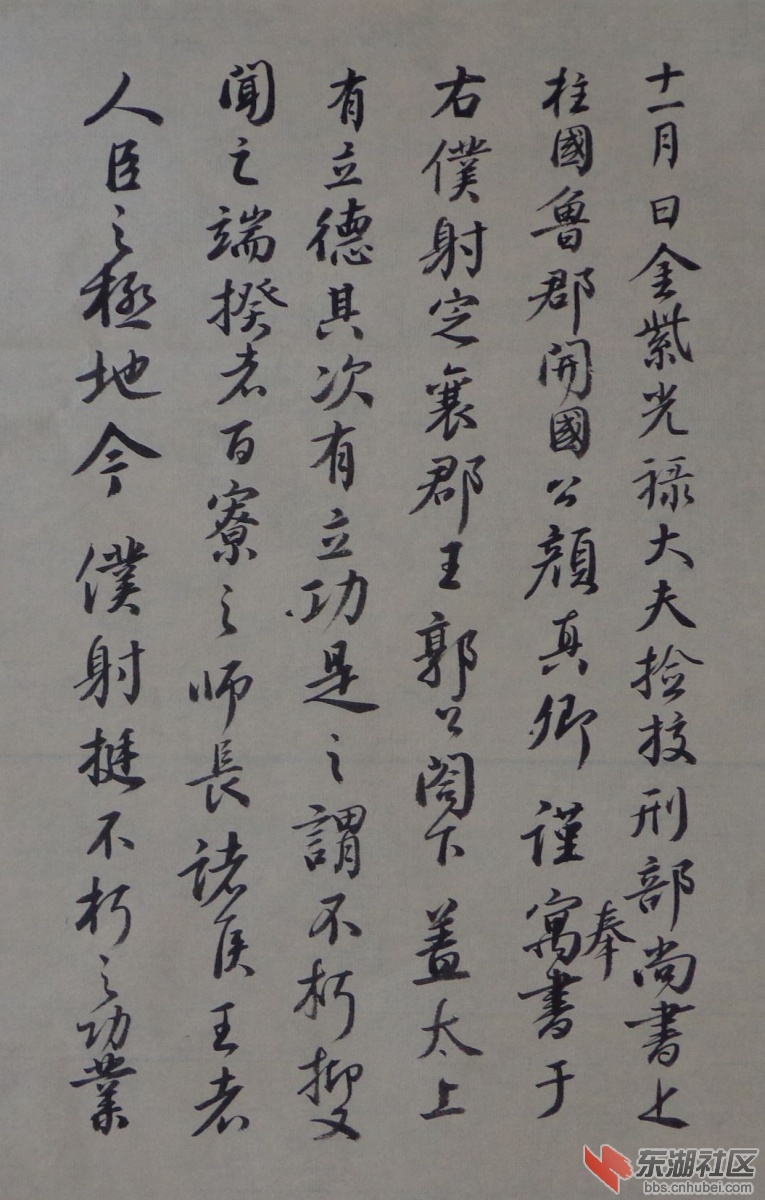 十一月日金紫光禄大夫捡挍刑部尚書上
柱國魯郡開國公顔真卿謹寓書于
奉
右僕射定襄郡王郭公閤下蓋太上
有立德其次有立功是之謂不朽抑又
聞之端揆者百寮之师長諸侯王者
人臣之極地今僕射挺不朽之功業
东湖社区
bbs.cnhubei.com